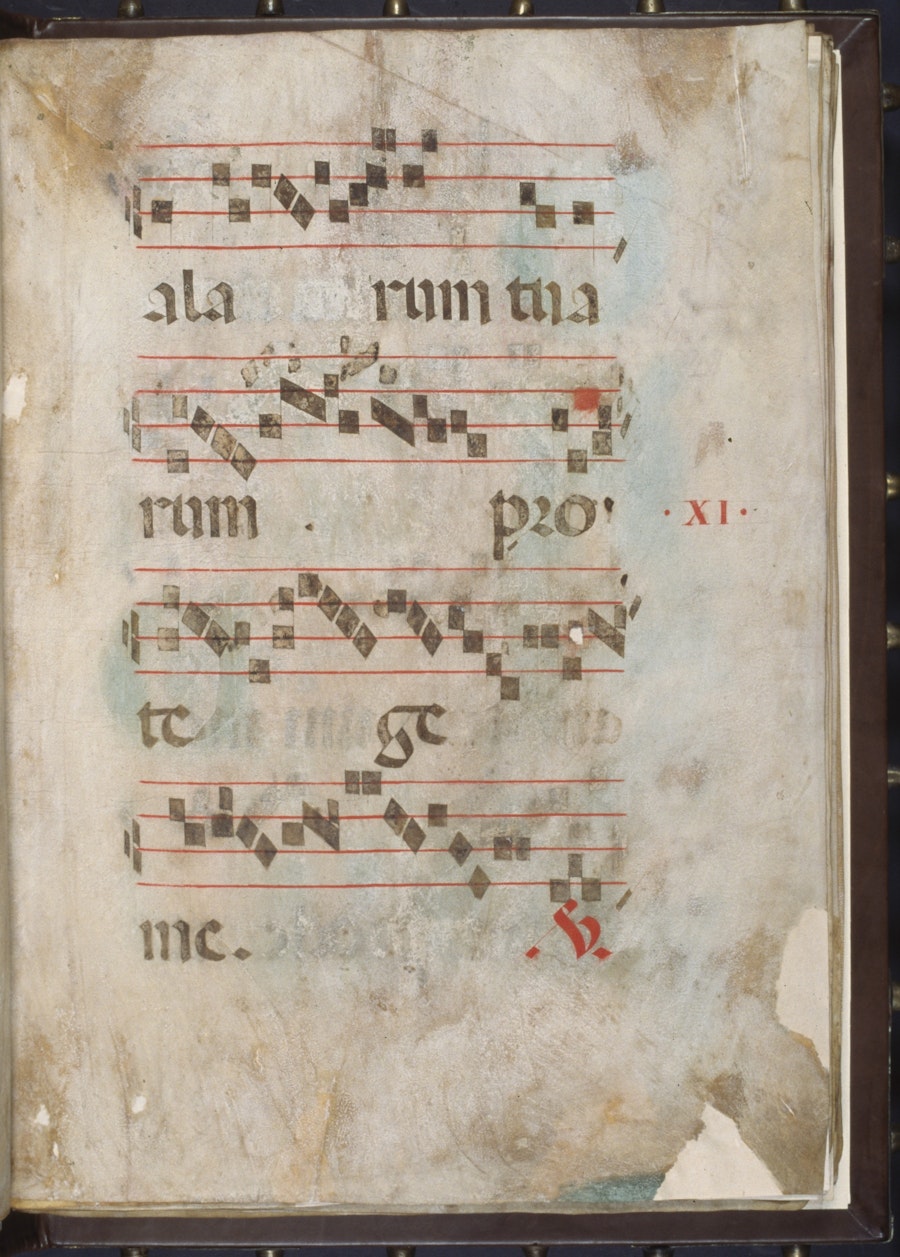 ala rum tua
rum . pro
· XI ·
te ge
me. .℣.